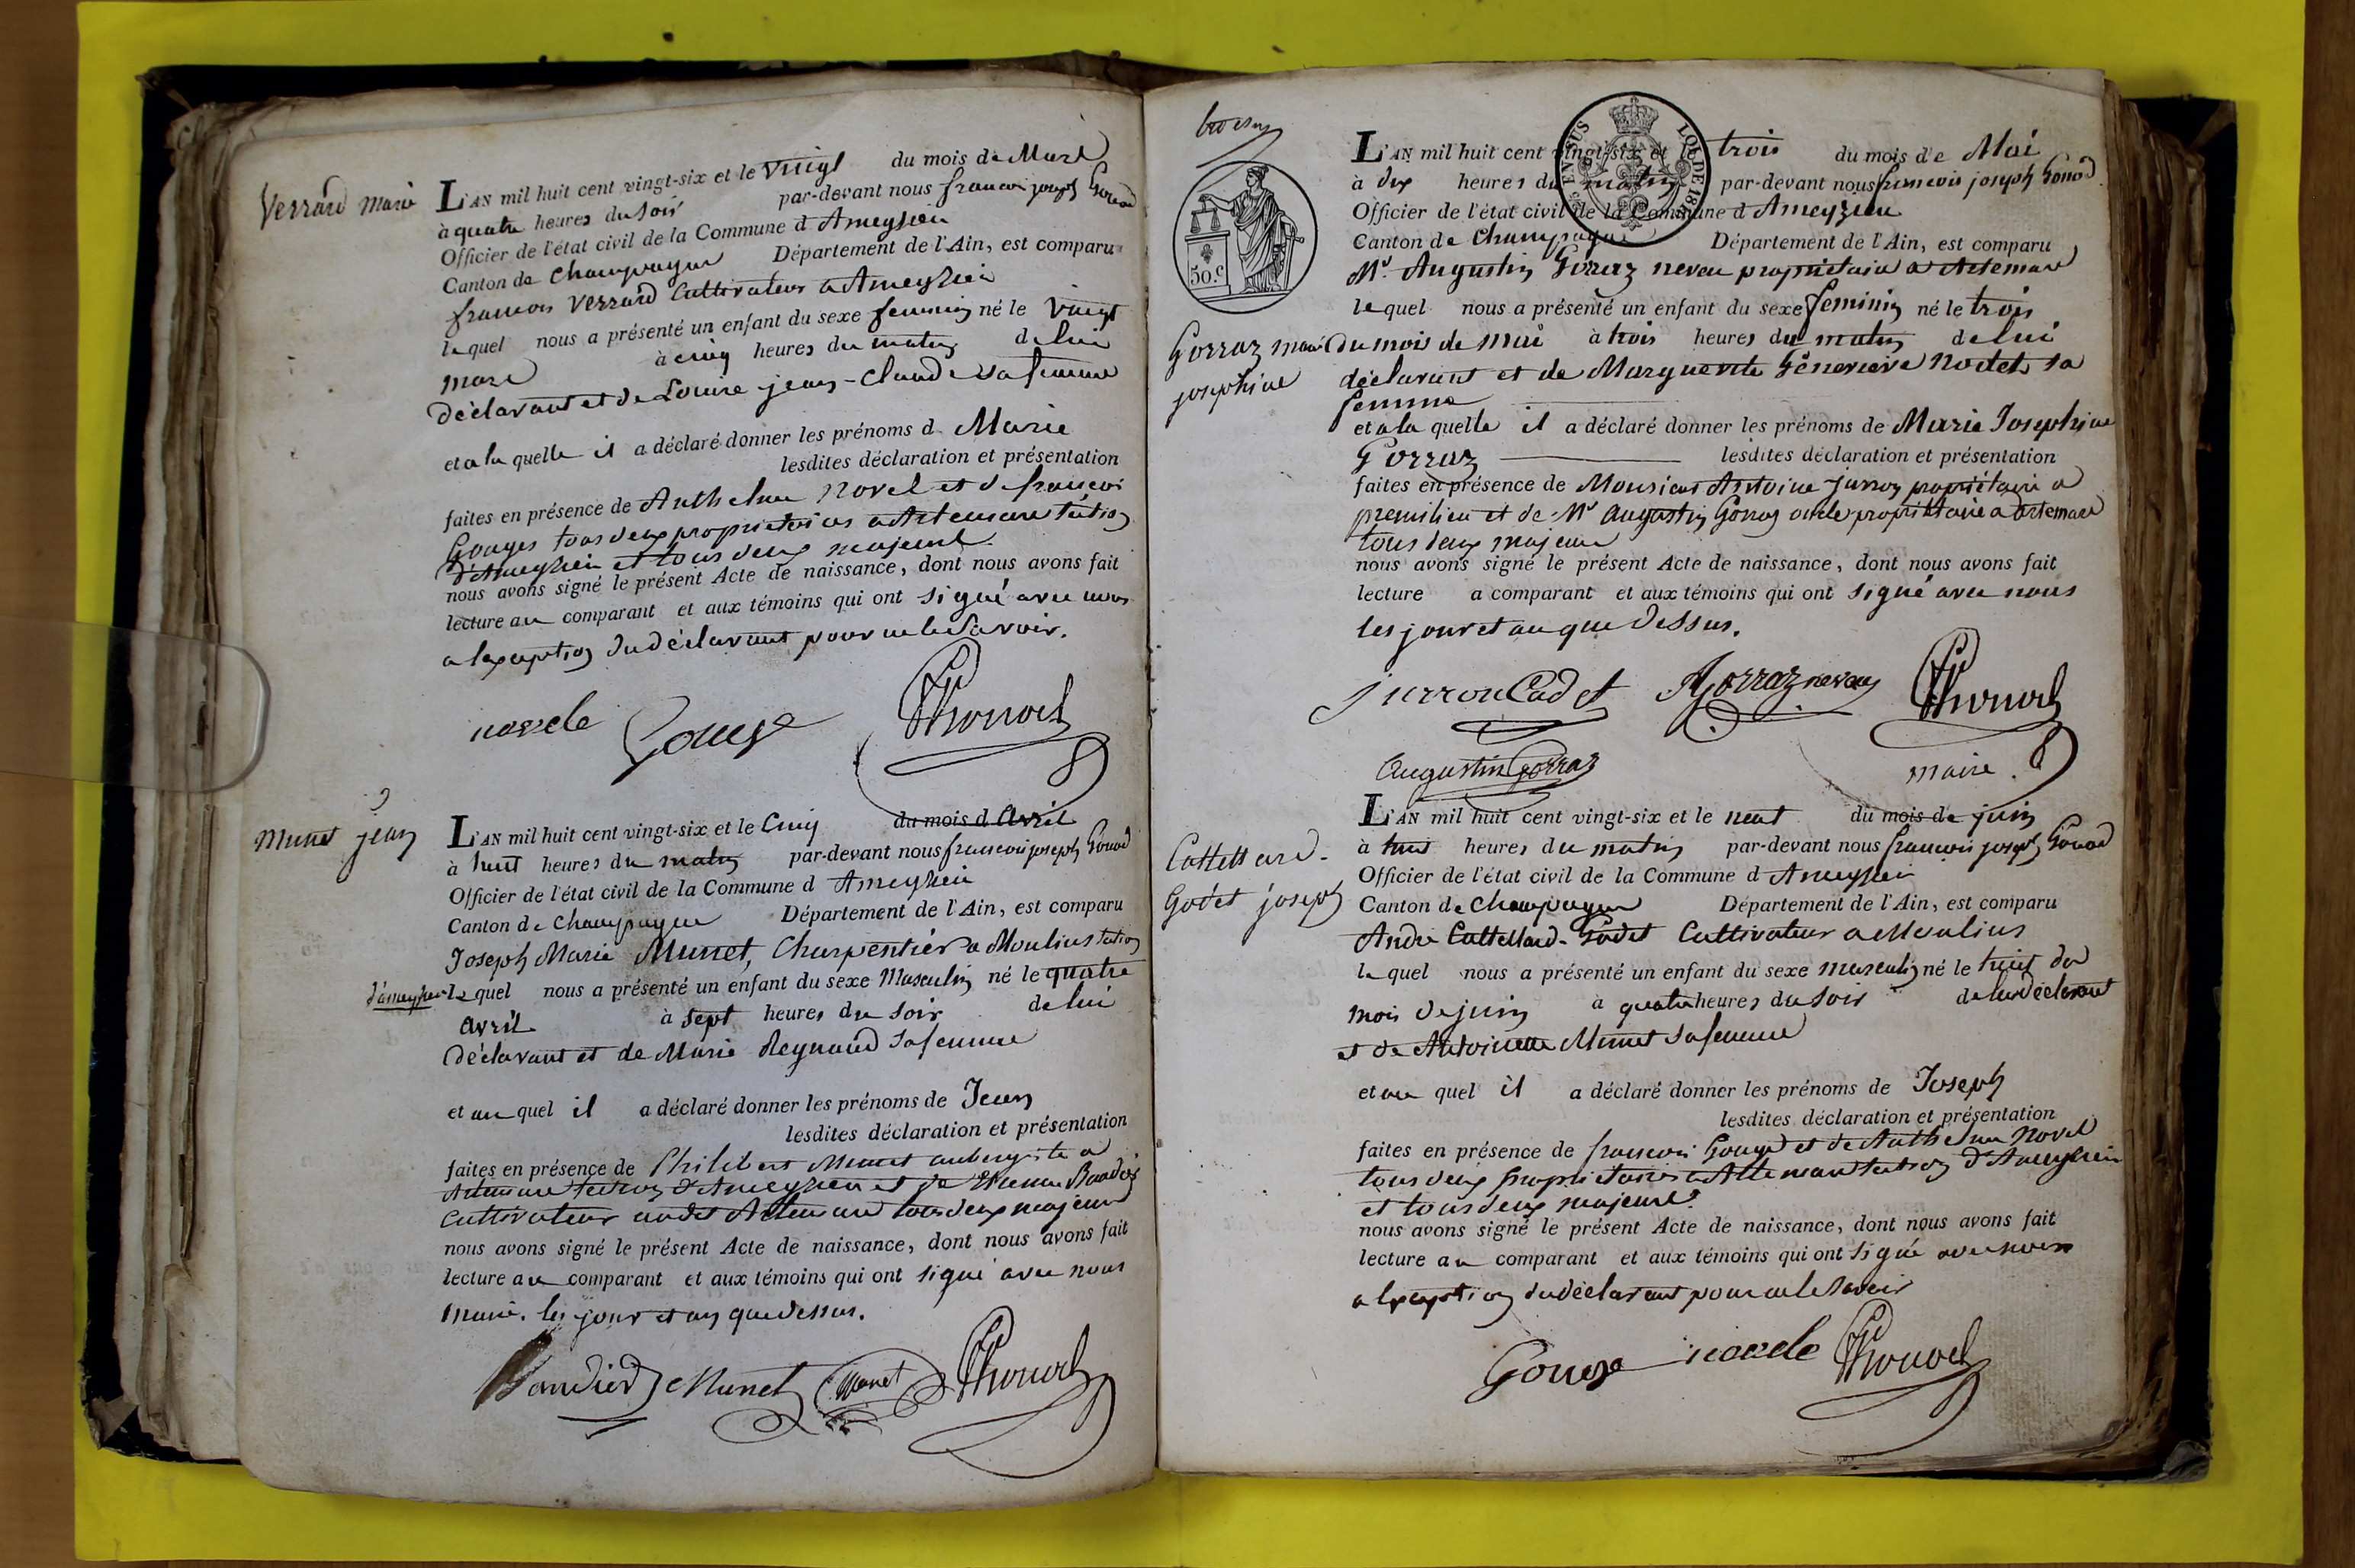 Verrard Marie
L'AN mil huit cent vingt-six et le vingt du mois de Mars
à quatre heures du Soir par-devant nous francois joseph Gonod
Officier de l'état civil de la Commune d'Ameyzieu
Canton de Champagne Département de l'Ain, est comparu
francois Verrard Cultivateur a Ameyzieu
lequel nous a présenté un enfant du sexe feminin né le vingt
mars à cinq heures du matin de lui
déclarant et de Louise jean-Claude sa femme
et a la quelle il a déclaré donner les prénoms d Marie
lesdites déclaration et présentation
faites en présence de Anthelme Novel et de francois
Gouges tous deux proprietaires a Artemare section
d'Ameyzieu et tous deux majeurs
nous avons signé le présent Acte de naissance, dont nous avons fait
lecture au comparant et aux témoins qui ont signé avec nous
a lexception du déclarant pour ne le Savoir.
novele Gouge Gonod
Munet jean
L'AN mil huit cent vingt-six et le Cinq du mois d Avril
à huit heures du matin par-devant nous francois joseph Gonod
Officier de l'état civil de la Commune d Ameyzieu
Canton de Champagne Département de l'Ain, est comparu
Joseph Marie Munet, Charpentier a Moulins section
d'ameyzieu lequel nous a présenté un enfant du sexe Masculin né le quatre
avril à sept heures du soir de lui
déclarant et de Marie Reynaud sa femme
et au quel il a déclaré donner les prénoms de Jean
lesdites déclaration et présentation
faites en présence de Philibert Munet aubergiste a
Artemare section d'Ameyzieu et de Etienne Baudin
cultivateur audit Artemare tous deux majeurs
nous avons signé le présent Acte de naissance, dont nous avons fait
lecture au comparant et aux témoins qui ont signé avec nous
maire. les jour et an que dessus.
Munet Munet Gonod
50.c
EN SUS LOI DE
Gorraz marie
josephine
L'AN mil huit cent vingt-six et le trois du mois de Mai
à dix heures du matin par-devant nous francois joseph Gonod
Officier de l'état civil de la Commune d Ameyzieu
Canton de Champagne Département de l'Ain, est comparu
Mr. Augustin Gorraz neveu propriétaire a Artemare
lequel nous a présenté un enfant du sexe feminin né le trois
du mois de mai à trois heures du matin de lui
déclarant et de Marguerite Géneviève Nodet sa
femme
et a la quelle il a déclaré donner les prénoms de Marie Josephine
Gorraz lesdites déclaration et présentation
faites en présence de Monsieur Antoine jurron propriétaire a
premilieu et de Mr Augustin Gorraz oncle propriétaire a artemare
tous deux majeurs
nous avons signé le présent Acte de naissance, dont nous avons fait
lecture a comparant et aux témoins qui ont signé avec nous
les jour et an que Dessus.
jurron Cadet AGorraz neveu Gonod
Augustin Gorraz maire.
Cattelard-
Godet joseph
L'AN mil huit cent vingt-six et le neuf du mois de juin
à huit heures du matin par-devant nous francois joseph Gonod
Officier de l'état civil de la Commune d Ameyzieu
Canton de Champagne Département de l'Ain, est comparu
André Cattelard-Godet Cultivateur a Moulins
lequel nous a présenté un enfant du sexe masculin né le huit du
mois de juin à quatre heures du soir de lui déclarant
et de Antoinette Munet sa femme
et au quel il a déclaré donner les prénoms de Joseph
lesdites déclaration et présentation
faites en présence de francois Gouge et de Anthelme Novel
tous deux proprietaires a Artemare section d'Ameyzieu
et tous deux majeurs
nous avons signé le présent Acte de naissance, dont nous avons fait
lecture au comparant et aux témoins qui ont signé avec nous
a lexception du déclarant pour ne le savoir
Gouge novele Gonod